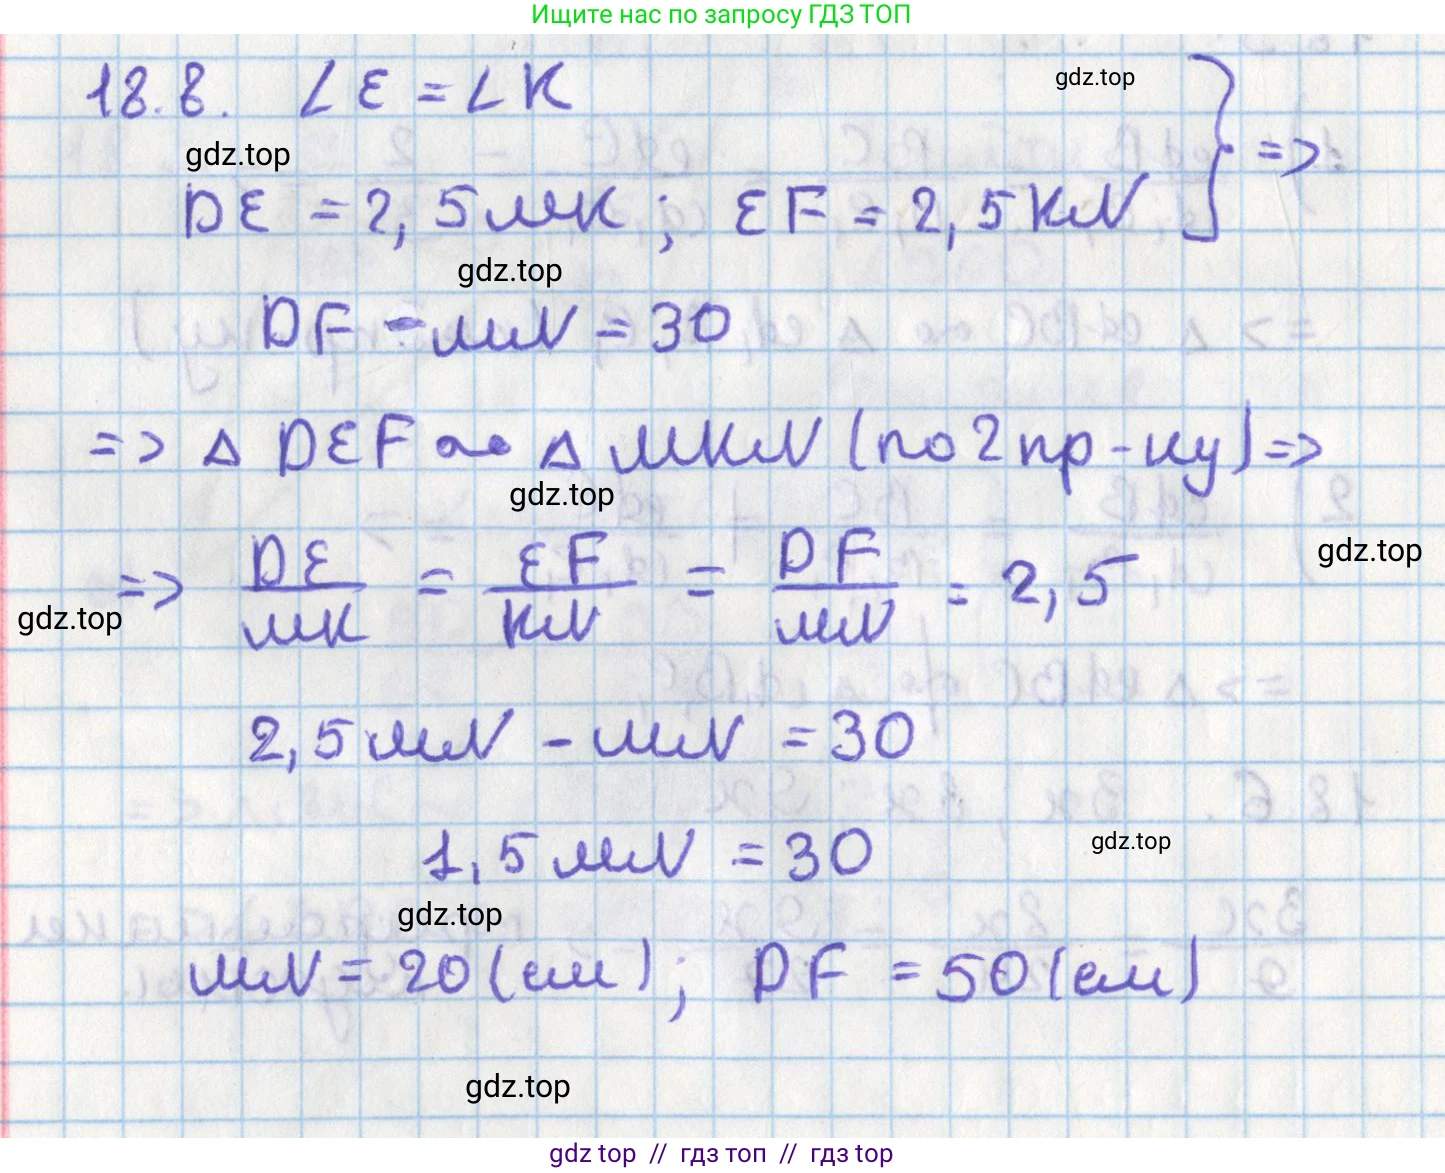 Ищите нас по запросу ГДЗ ТОП
18.8. ∠E = ∠K
gdz.top
gdz.top
DE = 2,5MK; EF = 2,5KN } =>
gdz.top
DF - MN = 30
=> Δ DEF ∾ Δ MKN (по 2 пр-ку) =>
gdz.top
gdz.top
=> DE/MK = EF/KN = DF/MN = 2,5
gdz.top
2,5MN - MN = 30
1,5MN = 30
gdz.top
gdz.top
MN = 20 (см); DF = 50 (см)
gdz.top
gdz top // гдз топ // gdz top